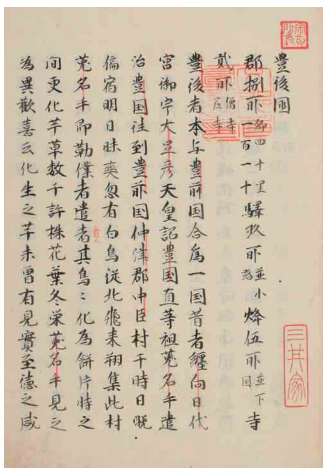 豊後國
郡捌所郷四十里一百一十驛玖所並小路烽伍所並下國寺
貳所僧寺尼寺
豊後者本与豊前国合為一国昔者纒向日代
宮御宇大足彦天皇詔豊国直等祖菟名手遣
治豊国往到豊前国仲津郡中臣村于時日晩
僑宿明日昧爽忽有白鳥従北飛来翔集此村
菟名手即勒僕者遣看其鳥〻化為餅片時之
間更化芋草数千許株花葉冬栄菟名手見之
為異歓喜云化生之芋未曽有見實至徳之感
三井家